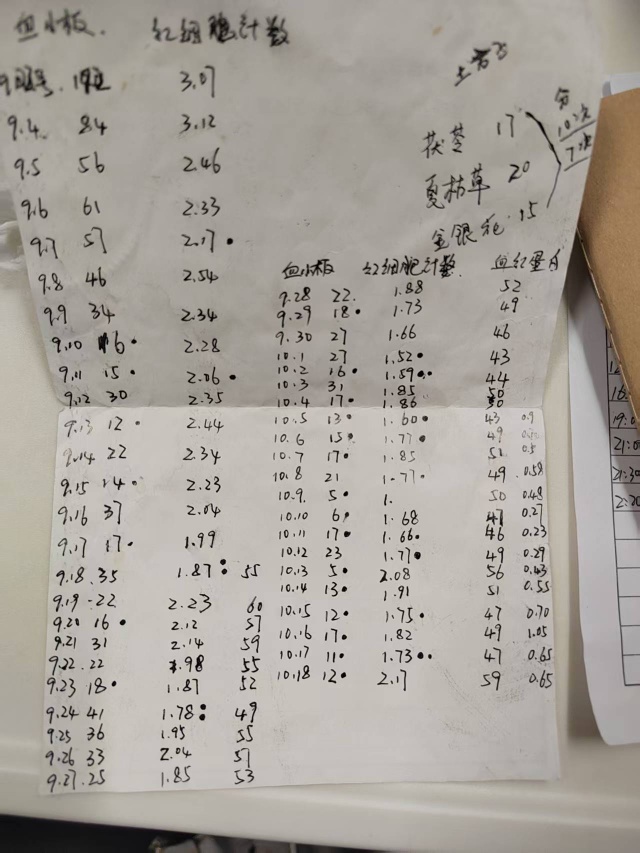 血小板. 红细胞计数
3.07
9.4 84 3.12
9.5 56 2.46
9.6 61 2.33
9.7 57 2.17•
9.8 46 2.54
9.9 34 2.34
9.10 16• 2.28
9.11 15• 2.06•
9.12 30 2.35
9.13 12• 2.44
9.14 22 2.34
9.15 14• 2.23
9.16 37 2.04
9.17 17• 1.99
9.18. 35 1.87: 55
9.19 -22 2.23 60
9.20 16• 2.12 57
9.21 31 2.14 59
9.22. 22 1.98 55
9.23 18• 1.87 52
9.24 41 1.78: 49
9.25 36 1.95 55
9.26 33 2.04 57
9.27. 25 1.85 53
茯苓 17
夏枯草 20
金银花 15
血小板 红细胞计数 血红蛋白
9.28 22 1.88 52
9.29 18• 1.73 49
9.30 27 1.66 46
10.1 27 1.52• 43
10.2 16• 1.59•• 44
10.3 31 1.85 50
10.4 17• 1.86 50
10.5 13• 1.60• 43 0.9
10.6 15• 1.77• 49
10.7 17• 1.85 51 0.5
10.8 21 1.77• 49 0.58
10.9. 5• 1. 50 0.48
10.10 6• 1.68 47 0.27
10.11 17• 1.66• 46 0.23
10.12 23 1.77• 49 0.29
10.13 5• 2.08 56 0.43
10.14 13• 1.91 51 0.55
10.15 12• 1.75• 47 0.70
10.16 17• 1.82 49 1.05
10.17 11• 1.73•• 47 0.65
10.18 12• 2.17 59 0.65
19:0
21:0
21:30
2:20